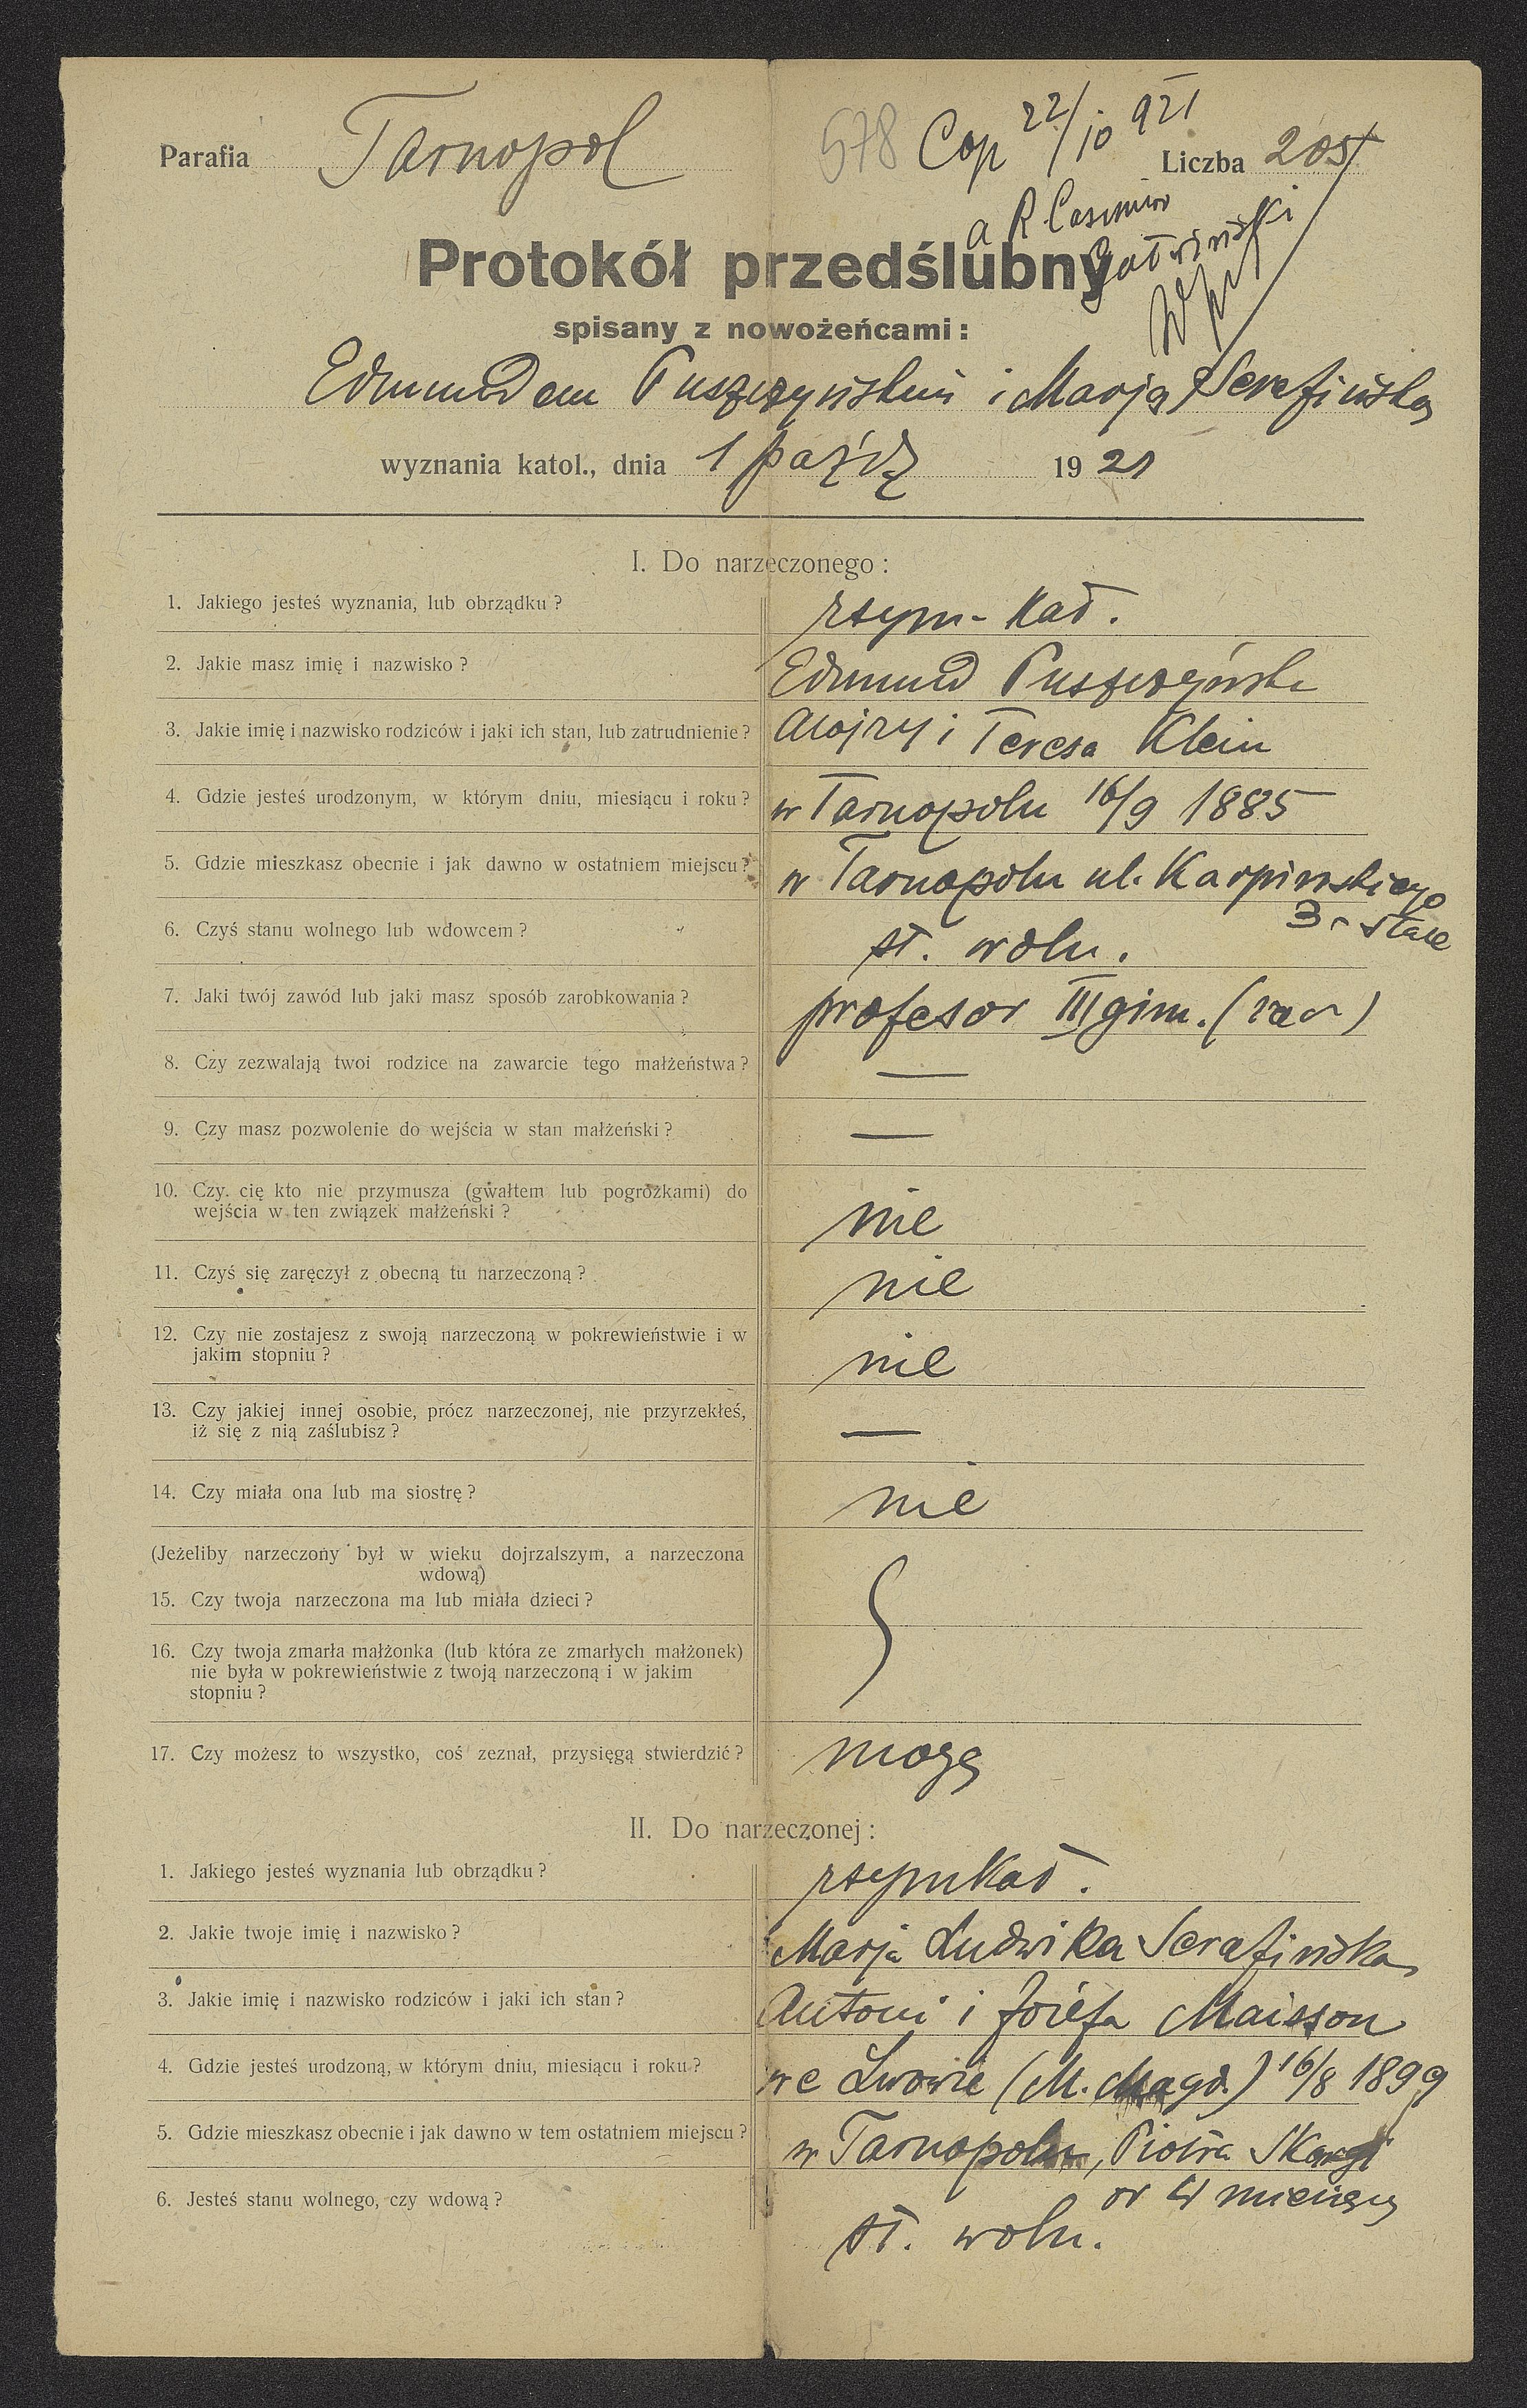 Parafia Tarnopol 578 Cop 22/10 921 Liczba 205
a R. Casimiro
Protokół przedślubny
spisany z nowożeńcami:
Edmundem Puszczyńskim i Marją Serafińską
wyznania katol., dnia 1 paźdz 1921
I. Do narzeczonego:
1. Jakiego jesteś wyznania, lub obrządku? rzym-kat.
2. Jakie masz imię i nazwisko? Edmund Puszczyński
3. Jakie imię i nazwisko rodziców i jaki ich stan, lub zatrudnienie? Alojzy i Teresa Klein
4. Gdzie jesteś urodzonym, w którym dniu, miesiącu i roku? w Tarnopolu 16/9 1885
5. Gdzie mieszkasz obecnie i jak dawno w ostatniem miejscu? w Tarnopolu ul. Karpińskiego
3 stale
6. Czyś stanu wolnego lub wdowcem? st. woln.
7. Jaki twój zawód lub jaki masz sposób zarobkowania? profesor III gim.
8. Czy zezwalają twoi rodzice na zawarcie tego małżeństwa? —
9. Czy masz pozwolenie do wejścia w stan małżeński? —
10. Czy cię kto nie przymusza (gwałtem lub pogróżkami) do
wejścia w ten związek małżeński? nie
11. Czyś się zaręczył z obecną tu narzeczoną? nie
12. Czy nie zostajesz z swoją narzeczoną w pokrewieństwie i w
jakim stopniu? nie
13. Czy jakiej innej osobie, prócz narzeczonej, nie przyrzekłeś,
iż się z nią zaślubisz? —
14. Czy miała ona lub ma siostrę? nie
(Jeżeliby narzeczony był w wieku dojrzalszym, a narzeczona
wdową)
15. Czy twoja narzeczona ma lub miała dzieci?
16. Czy twoja zmarła małżonka (lub która ze zmarłych małżonek)
nie była w pokrewieństwie z twoją narzeczoną i w jakim
stopniu?
17. Czy możesz to wszystko, coś zeznał, przysięgą stwierdzić? mogę
II. Do narzeczonej:
1. Jakiego jesteś wyznania lub obrządku? rzymkat.
2. Jakie twoje imię i nazwisko? Marja Ludwika Serafińska
3. Jakie imię i nazwisko rodziców i jaki ich stan? Antoni i Józefa Maisson
4. Gdzie jesteś urodzoną, w którym dniu, miesiącu i roku? we Lwowie (M. Magd.) 16/8 1899
5. Gdzie mieszkasz obecnie i jak dawno w tem ostatniem miejscu? w Tarnopolu, Piotra Skargi
od 4 miesięcy
6. Jesteś stanu wolnego, czy wdową? st. woln.